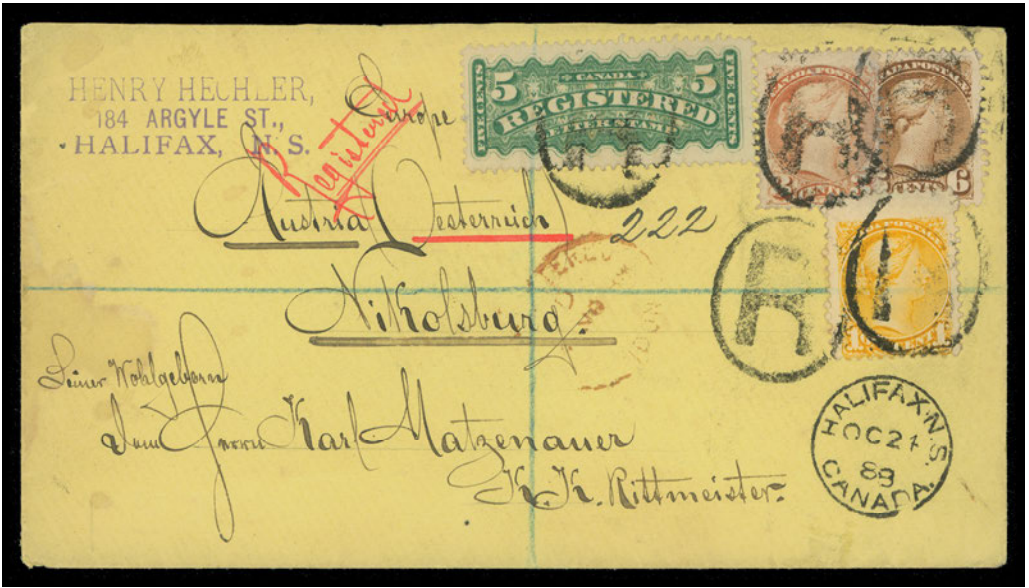 HENRY HECHLER,
184 ARGYLE ST.,
HALIFAX, N. S.
Registered
Europe
5 CANADA 5
FIVE CENTS REGISTERED FIVE CENTS
LETTER STAMP
CANADA POSTAGE
6
Austria (Oesterreich)
222
Nikolsburg.
R
1 1
Seiner Wohlgeborn
dem Herrn Karl Matzenauer
K. K. Rittmeister.
HALIFAX. N.S.
OC 21
88
CANADA.